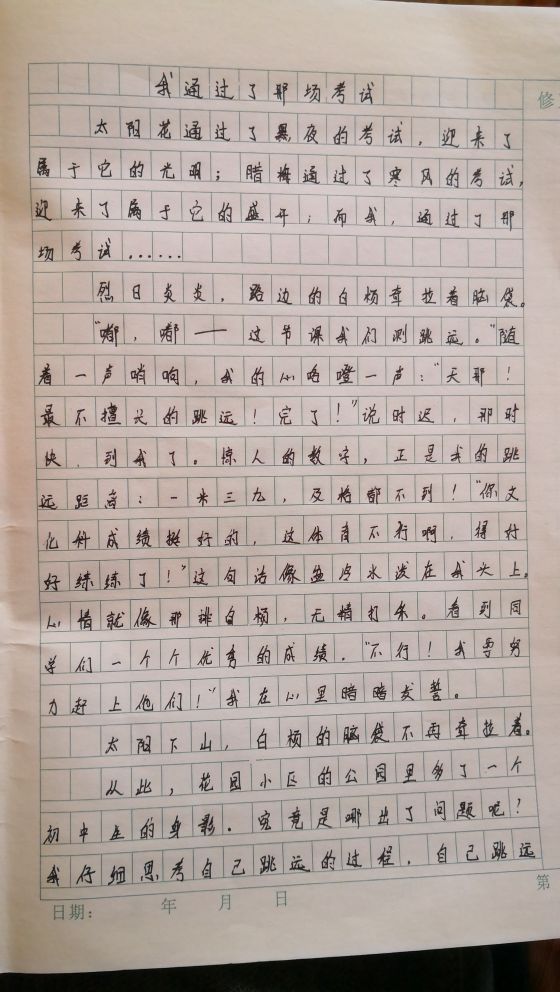 我通过了那场考试
修
太阳花通过了黑夜的考试，迎来了
属于它的光明；腊梅通过了寒风的考试，
迎来了属于它的盛开；而我，通过了那
场考试……
烈日炎炎，路边的白杨耷拉着脑袋。
“嘟，嘟——这节课我们测跳远。”随
着一声哨响，我的心咯噔一声：“天那！
最不擅长的跳远！完了！”说时迟，那时
快，到我了。惊人的数字，正是我的跳
远距离：一米三九，及格都不到！“你文
化科成绩挺好的，这体育不行啊，得好
好练练了！”这句话像盆冷水泼在我头上。
心情就像那排白杨，无精打采。看到同
学们一个个优秀的成绩，“不行！我要努
力赶上他们！”我在心里暗暗发誓。
太阳下山，白杨的脑袋不再耷拉着。
从此，花园小区的公园里多了一个
初中生的身影。究竟是哪出了问题呢？
我仔细思考自己跳远的过程，自己跳远
第
日期： 年 月 日